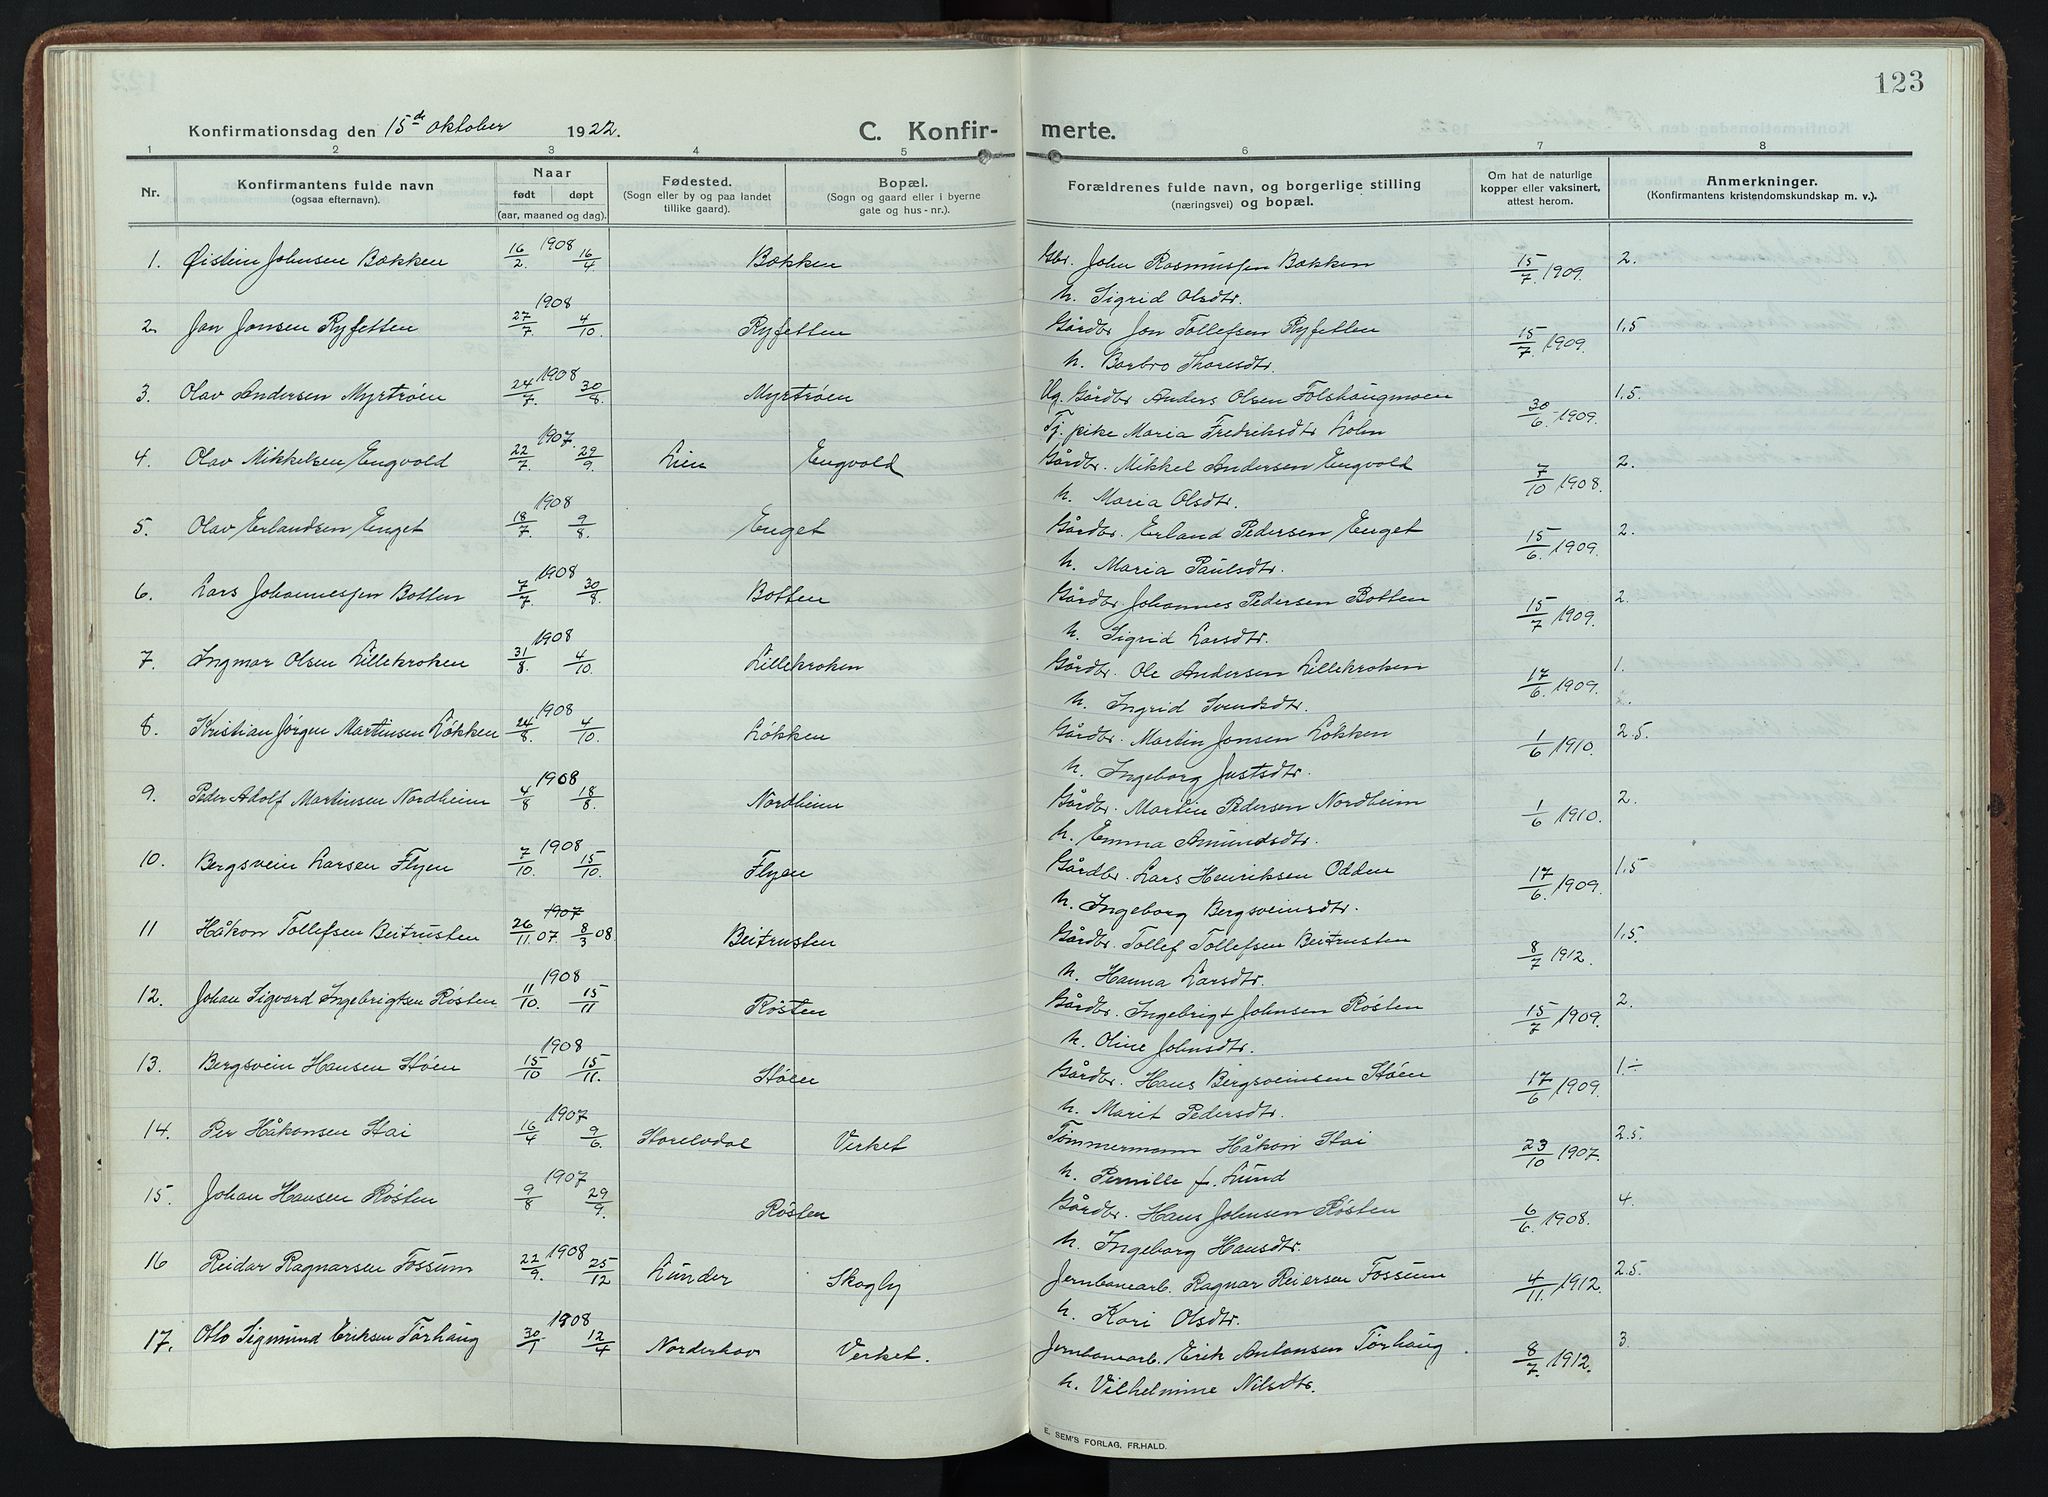 123
Konfirmationsdag den 15de oktober 1922.
C. Konfirmerte.
1 2 3 4 5 6 7 8
Nr.
Konfirmantens fulde navn
(ogsaa efternavn).
Naar
født døpt
(aar, maaned og dag).
Fødested.
(Sogn eller by og paa landet
tillike gaard).
Bopæl.
(Sogn og gaard eller i byerne
gate og hus-nr.).
Forældrenes fulde navn, og borgerlige stilling
(næringsvei) og bopæl.
Om hat de naturlige
kopper eller vaksinert,
attest herom.
Anmerkninger.
(Konfirmantens kristendomskundskap m. v.).
1. Øistein Johnsen Bækken 16/2 1908 16/4 Bækken Gbr. John Rasmussen Bækken 15/7 1909. 2.
h. Sigrid Olsdtr.
2. Jon Jonsen Ryfetten 27/7 1908 4/10 Ryfetten Gårdbr Jon Tollefsen Ryfetten 15/7 1909. 1,5
h. Barbro Thoresdtr.
3. Olav Andersen Myrtrøen 24/7 1908 30/8. Myrtrøen Ug. Gårdbr Anders Olsen Folshaugmoen 30/6 1909. 1,5.
Tj. pike Maria Fredriksdtr Holm
4. Olav Mikkelsen Engvold 22/7. 1907. 29/9. Lien Engvold Gårdbr. Mikkel Andersen Engvold 7/10 1908. 2.
h. Maria Olsdtr.
5. Olav Erlandsen Enget 18/7. 1908 9/8. Enget Gårdbr. Erland Pedersen Enget 15/6 1909. 2.
h. Maria Paulsdtr.
6. Lars Johannessen Botten 7/7 1908 30/8. Botten Gårdbr. Johannes Pedersen Botten 15/7 1909. 2.
h. Sigrid Larsdtr.
7. Ingmar Olsen Lillekroken 31/8. 1908 4/10. Lillekroken Gårdbr. Ole Andersen Lillekroken 17/6 1909. 1.
h. Ingrid Svendsdtr.
8. Kristian Jørgen Martinsen Løkken 24/8. 1908 4/10. Løkken Gårdbr. Martin Jonsen Løkken 1/6 1910. 2.5.
h. Ingeborg Jostsdtr.
9. Peder Adolf Martinsen Nordheim 4/8 1908 18/8. Nordheim Gårdbr. Martin Pedersen Nordheim 1/6 1910. 2.
h. Emma Amundsdtr.
10. Bergsvein Larsen Flyen 7/10. 1908 15/10. Flyen Gårdbr. Lars Henriksen Odden 17/6 1909. 1,5
h. Ingeborg Bergsveinsdtr.
11 Håkon Tollefsen Beitrusten 26/11. 07 1907 8/3 08 Beitrusten Gårdbr. Tollef Tollefsen Beitrusten 8/7 1912. 1,5.
h. Hanna Larsdtr.
12. Johan Sigvard Ingebrigtsen Røsten 11/10. 1908 15/11 Røsten Gårdbr. Ingebrigt Johnsen Røsten 15/7 1909. 2.
h. Oline Johnsdtr.
13. Bergsvein Hansen Støen 15/10 1908 15/11. Støen Gårdbr. Hans Bergsveinsen Støen 17/6 1909. 1.÷
h. Marit Pedersdtr.
14. Per Håkonsen Stai 16/4 1907 9/6. Storelvdal Verket Tømmermann Håkon Stai 23/10 1907. 2.5.
h. Pernille f. Lund
15. Johan Hansen Røsten 9/8 1907 29/9. Røsten Gårdbr. Hans Johnsen Røsten 6/6. 1908. 4.
h. Ingeborg Hansdtr.
16 Reidar Ragnarsen Fossum 22/9. 1908 25/12 Lunder Skogly Jernbanearb. Ragnar Reiersen Fossum 4/11. 1912. 2.5.
h. Kari Olsdtr.
17. Otto Sigmund Eriksen Tørhaug 30/1 1908 12/4 Norderhov Verket. Jernbanearb. Erik Antonsen Tørhaug 8/7. 1912. 3.
h. Vilhelmine Nilsdtr.
E. SEM'S FORLAG, FR.HALD.